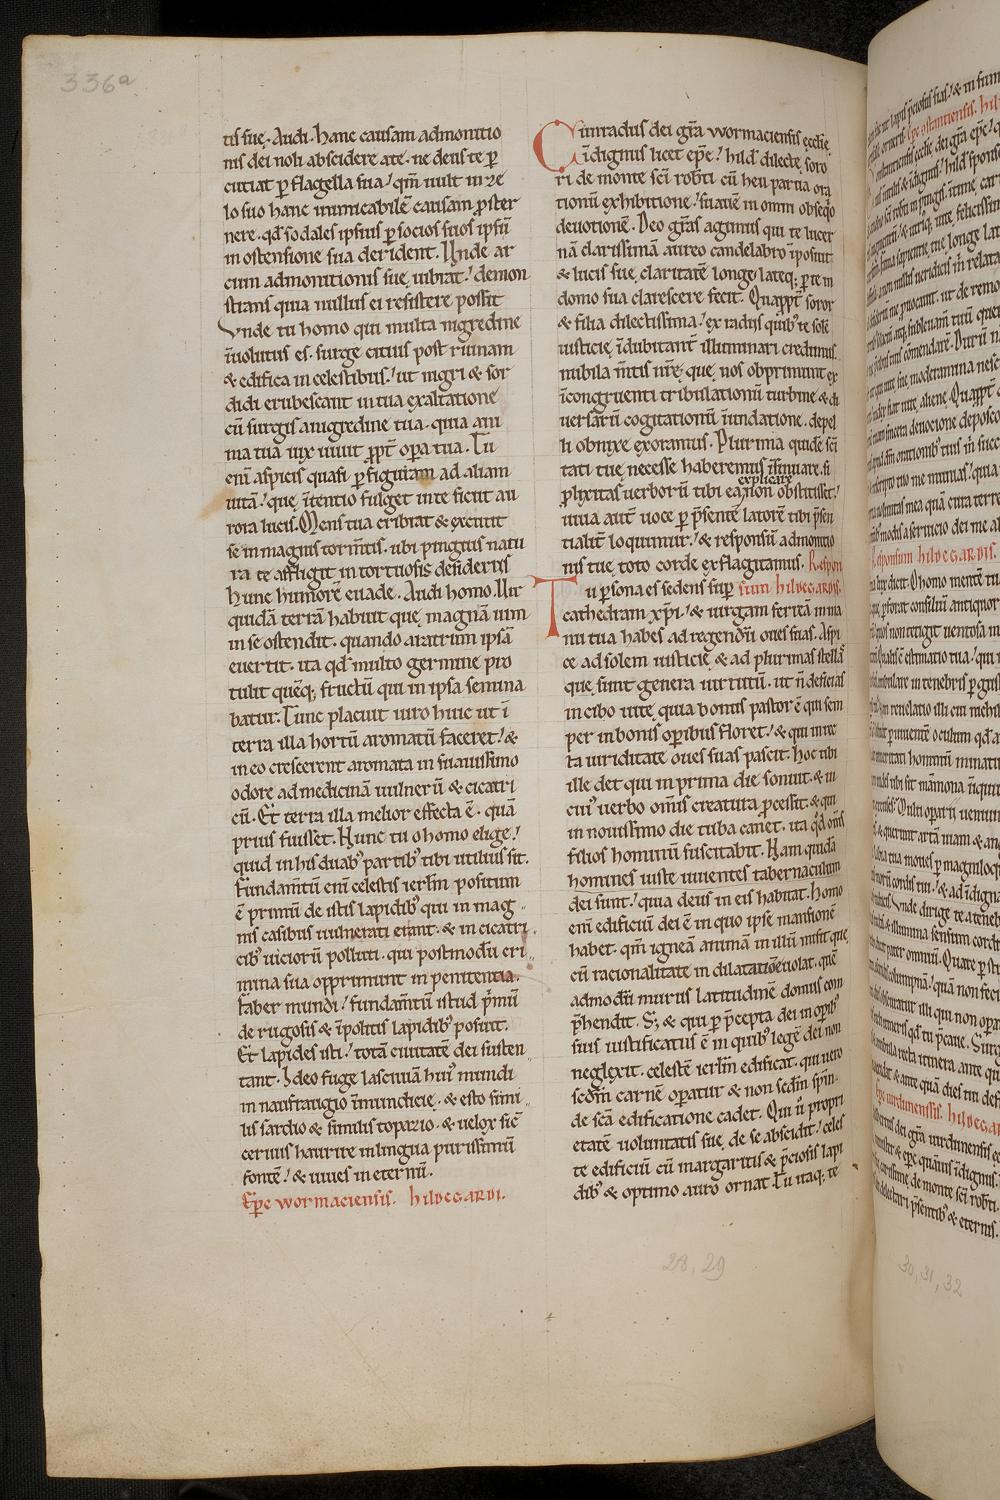 336a
tis suę. Audi. hanc causam admonitio
nis dei noli abscidere a te. ne deus te ꝑ
cutiat ꝑ flagella sua! qm̄ uult in ze
lo suo hanc inimicabilē causam ꝓster
nere. qd̓ sodales ipsius ꝑ socios suos ipsū
in ostensione sua derident. Vnde ar
cum admonitionis suę uibrat! demon
strans quia nullus ei resistere possit
Vnde tu homo qui multa nigredine
īuolutus es. surge citius post ruinam
& edifica in celestibus! ut nigri & sor
didi erubescant in tua exaltatione
cū surgis a nigredine tua. quia ani
ma tua uix uiuit ꝓpt̄ oꝑa tua. Tu
eni aspicis quasi ꝑ figuram ad aliam
uitā! que ītentio fulget in te sicut au
rora lucis. Mens tua cribrat & excutit
se in magnis torm̄tis. ubi pinguis natu
ra te affligit in tortuosis desideriis
hunc humorē euade. Audi homo. Vir
quidā terrā habuit quę magnā uim
in se ostendit. quando aratrum ipsā
euertit. ita qd̓ multo germine pro
tulit quēq; fructū qui in ipsa semina
batur. Tunc placuit uiro huic ut ī
terra illa hortū aromatū faceret! &
in eo crescerent aromata in suauissimo
odore ad medicinā uulnerū & cicatri
cū. Et terra illa melior effecta ē. quā
prius fuisset. Nunc tu o homo elige!
quid in his duab' partib' tibi utilius sit.
Fundam̄tū enī celestis ierlm̄ positum
ē primū de istis lapidib' qui in mag
nis casibus uulnerati erant. & in cicatri
cib' uiciorū polluti. qui postmodū cri
mina sua opprimunt in penitentia.
Faber mundi! fundam̄tū istud p̄mū
de rugosis & īpolitis lapidib' posuit.
Et lapides isti! totā ciuitatē dei susten
tant. Ideo fuge lasciuiā hui' mundi
in naufragio īmundicię. & esto simi
lis sardio & similis topazio. & uelox sic̄
ceruus haurire in lingua purissimū
fontē! & uiues in eternū.
Ep̄c wormaciensis. hildegardi.
Cunradus dei gr̄a wormaciensis ęcclię
īdignus licet ep̄c! hild' dilectę soro
ri de monte sc̄i rob̄ti cū heu parua ora
tionū exhibitione! suauē in omni obseq̄o
deuotionē. Deo gr̄as agimus qui te lucer
nā clarissimā aureo candelabro īposuit
& lucis suę claritatē longe lateq; ꝑ te in
domo sua clarescere fecit. Quaꝓpt̄ soror
& filia dilectissima! ex radiis quib' te sole
iusticię īdubitant̄ illuminari credimus.
nubila m̄tis nr̄ę. que nos obprimunt ex
īcongruenti tribulationū turbine & di
uersarū cogitationū īundatione. depel
li obnixe exoramus. Plurima quidē sc̄i
tati tuę necesse haberemus īsinuare. si
explicare
ꝓlixitas uerborū tibi ea non obstitisset!
uiua aut̄ uoce ꝑ p̄sentē latorē tibi p̄sen
tialit̄ loquimur! & responsū admonitio
nis tuę toto corde exflagitamus. Respon
Tu ꝑsona es sedens suꝑ sum hildegardis.
cathedram xp̄i! & uirgam ferreā in ma
nu tua habes ad regendū oues suas. Aspi
ce ad solem iusticię & ad plurimas stellas
que sunt genera uirtutū. ut n̄ deficias
in cibo uitę. quia bonus pastor ē qui sem
per in bonis oꝑibus floret! & qui in rec
ta uiriditate oues suas pascit. hoc tibi
ille det qui in prima die sonuit. & in
cui' uerbo om̄is creatura ꝓcessit. & qui
in nouissimo die tuba canet. ita qd̓ om̄s
filios hominū suscitabit. Nam quidā
homines iuste uiuentes tabernaculum
dei sunt! quia deus in eis habitat. homo
enī edificiū dei ē in quo ipse mansionē
habet. qm̄ igneā animā in illū misit que
cū racionalitate in dilatatiōe uolat. quē
admodū murus latitudinē domus com
p̄hendit. S; & qui ꝑ p̄cepta dei in oꝑib'
suis iustificatus ē in quib' legē dei non
neglexit. celestē ierlm̄ edificat. qui uero
scd̄m carnē oꝑatur & non scd̄m spm̄.
de sc̄a edificatione cadet. Qui ū propri
etatē uoluntatis suę de se abscidit! celes
te edificiū cū margaritis & p̄ciosis lapi
dib' & optimo auro ornat. Tu itaq; te
28, 29
30, 31, 32